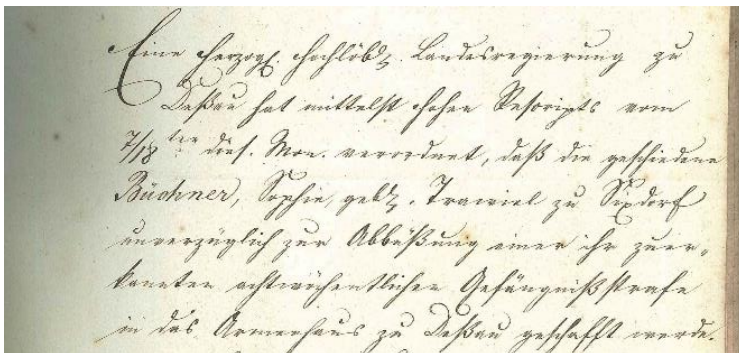 Eine Herzogl. Hochlöbl. Landesregierung zu
Deßau hat mittelst hohen Rescripts vom
7/18ten dies. Mon. verordnet, daß die geschiedene
Büchner, Sophie, geb. Trawiel zu Sixdorf
unverzüglich zur Abbüßung einer ihr zuer-
kannten achtwöchentlichen Gefängnißstrafe
in das Armenhaus zu Deßau geschafft werde.